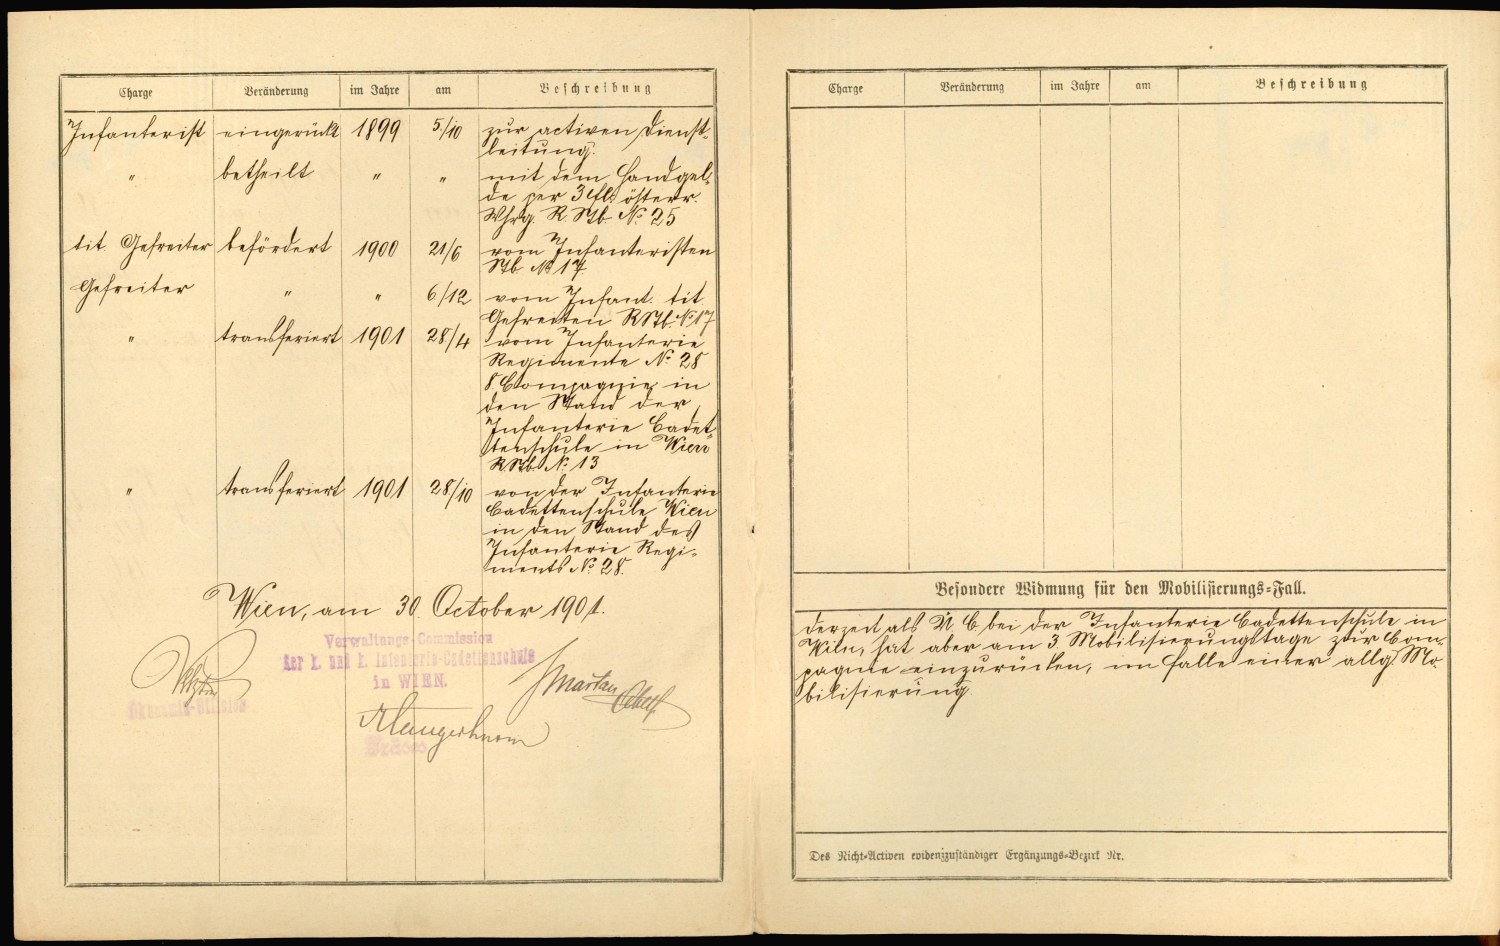 Charge Veränderung im Jahre am Beschreibung
Infanterist eingerückt 1899 5/10 zur activen Dienst-
leistung.
" betheilt " " mit dem Handgel-
de per 3 fl. österr.
Whrg. R. Stb. No. 25
tit. Gefreiter befördert 1900 21/6 vom Infanteristen
Stb No 17
Gefreiter " " 6/12 vom Infant. tit.
Gefreiten RStb. No 17
" transferiert 1901 28/4 vom Infanterie
Regimente No. 28
8. Compagnie in
den Stand der
Infanterie Cadet-
tenschule in Wien
RStb. No. 13
" transferiert 1901 28/10 von der Infanterie
Cadettenschule Wien
in den Stand des
Infanterie Regi-
ments No. 28.
Wien, am 30. October 1901.
Verwaltungs-Commission
der k. und k. Infanterie-Cadettenschule
in WIEN.
Charge Veränderung im Jahre am Beschreibung
Besondere Widmung für den Mobilisierungs-Fall.
derzeit als bei der Infanterie Cadettenschule in
Wien, hat aber am 3. Mobilisierungstage zur Com-
pagnie einzurücken, im Falle einer allg. Mo-
bilisierung.
Des Nicht-Activen evidenzzuständiger Ergänzungs-Bezirk Nr.